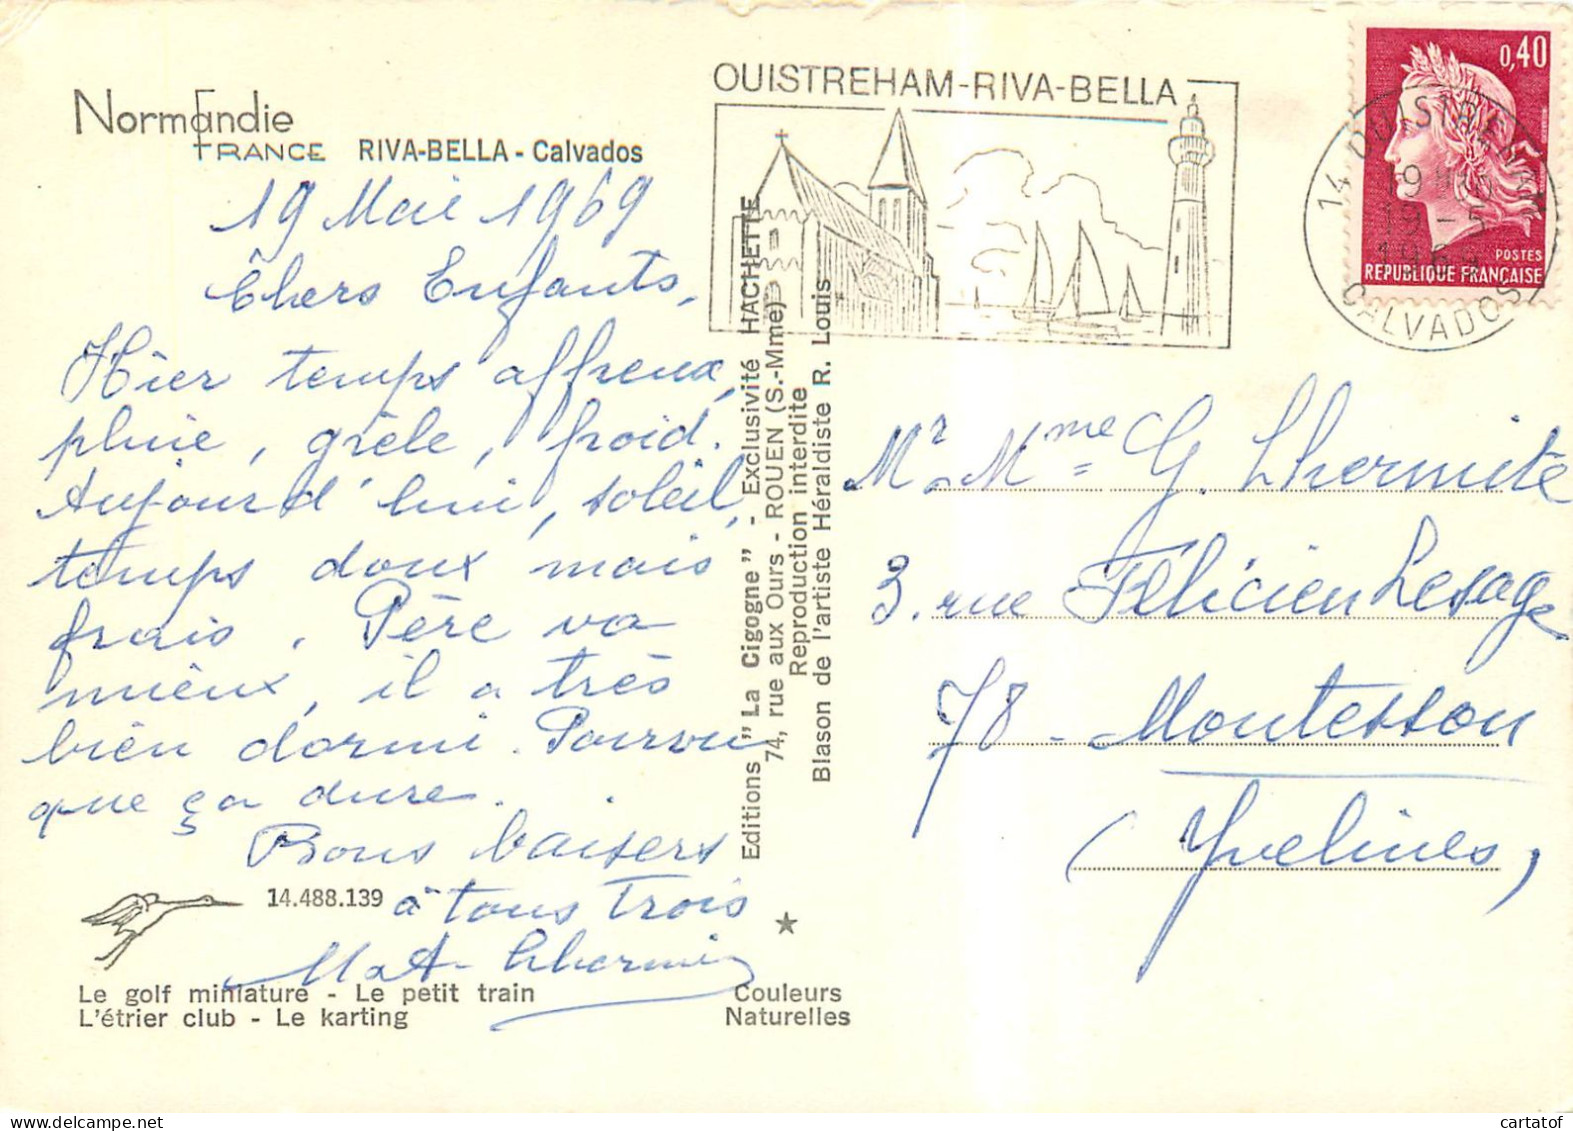 Normandie
FRANCE RIVA-BELLA - Calvados
19 Mai 1969
Chers Enfants,
Hier temps affreux,
pluie, grêle, froid.
Aujourd'hui, soleil,
temps doux mais
frais. Père va
mieux, il a très
bien dormi. Pourvu
que ça dure.
Bons baisers
à tous Trois
M et A. Lhermite
14.488.139
Le golf miniature - Le petit train
L'étrier club - Le karting
Editions "La Cigogne" - Exclusivité HACHETTE
74, rue aux Ours - ROUEN (S.-Mme)
Reproduction interdite
Blason de l'artiste Héraldiste R. Louis
Couleurs
Naturelles
OUISTREHAM-RIVA-BELLA
14 OUISTREHAM
19 H
19 - 5
1969
CALVADOS
0,40
POSTES
REPUBLIQUE FRANÇAISE
Mr. Mme G. Lhermite
3. rue Félicien Lesage
78 - Montesson
(Yvelines)
cartatof